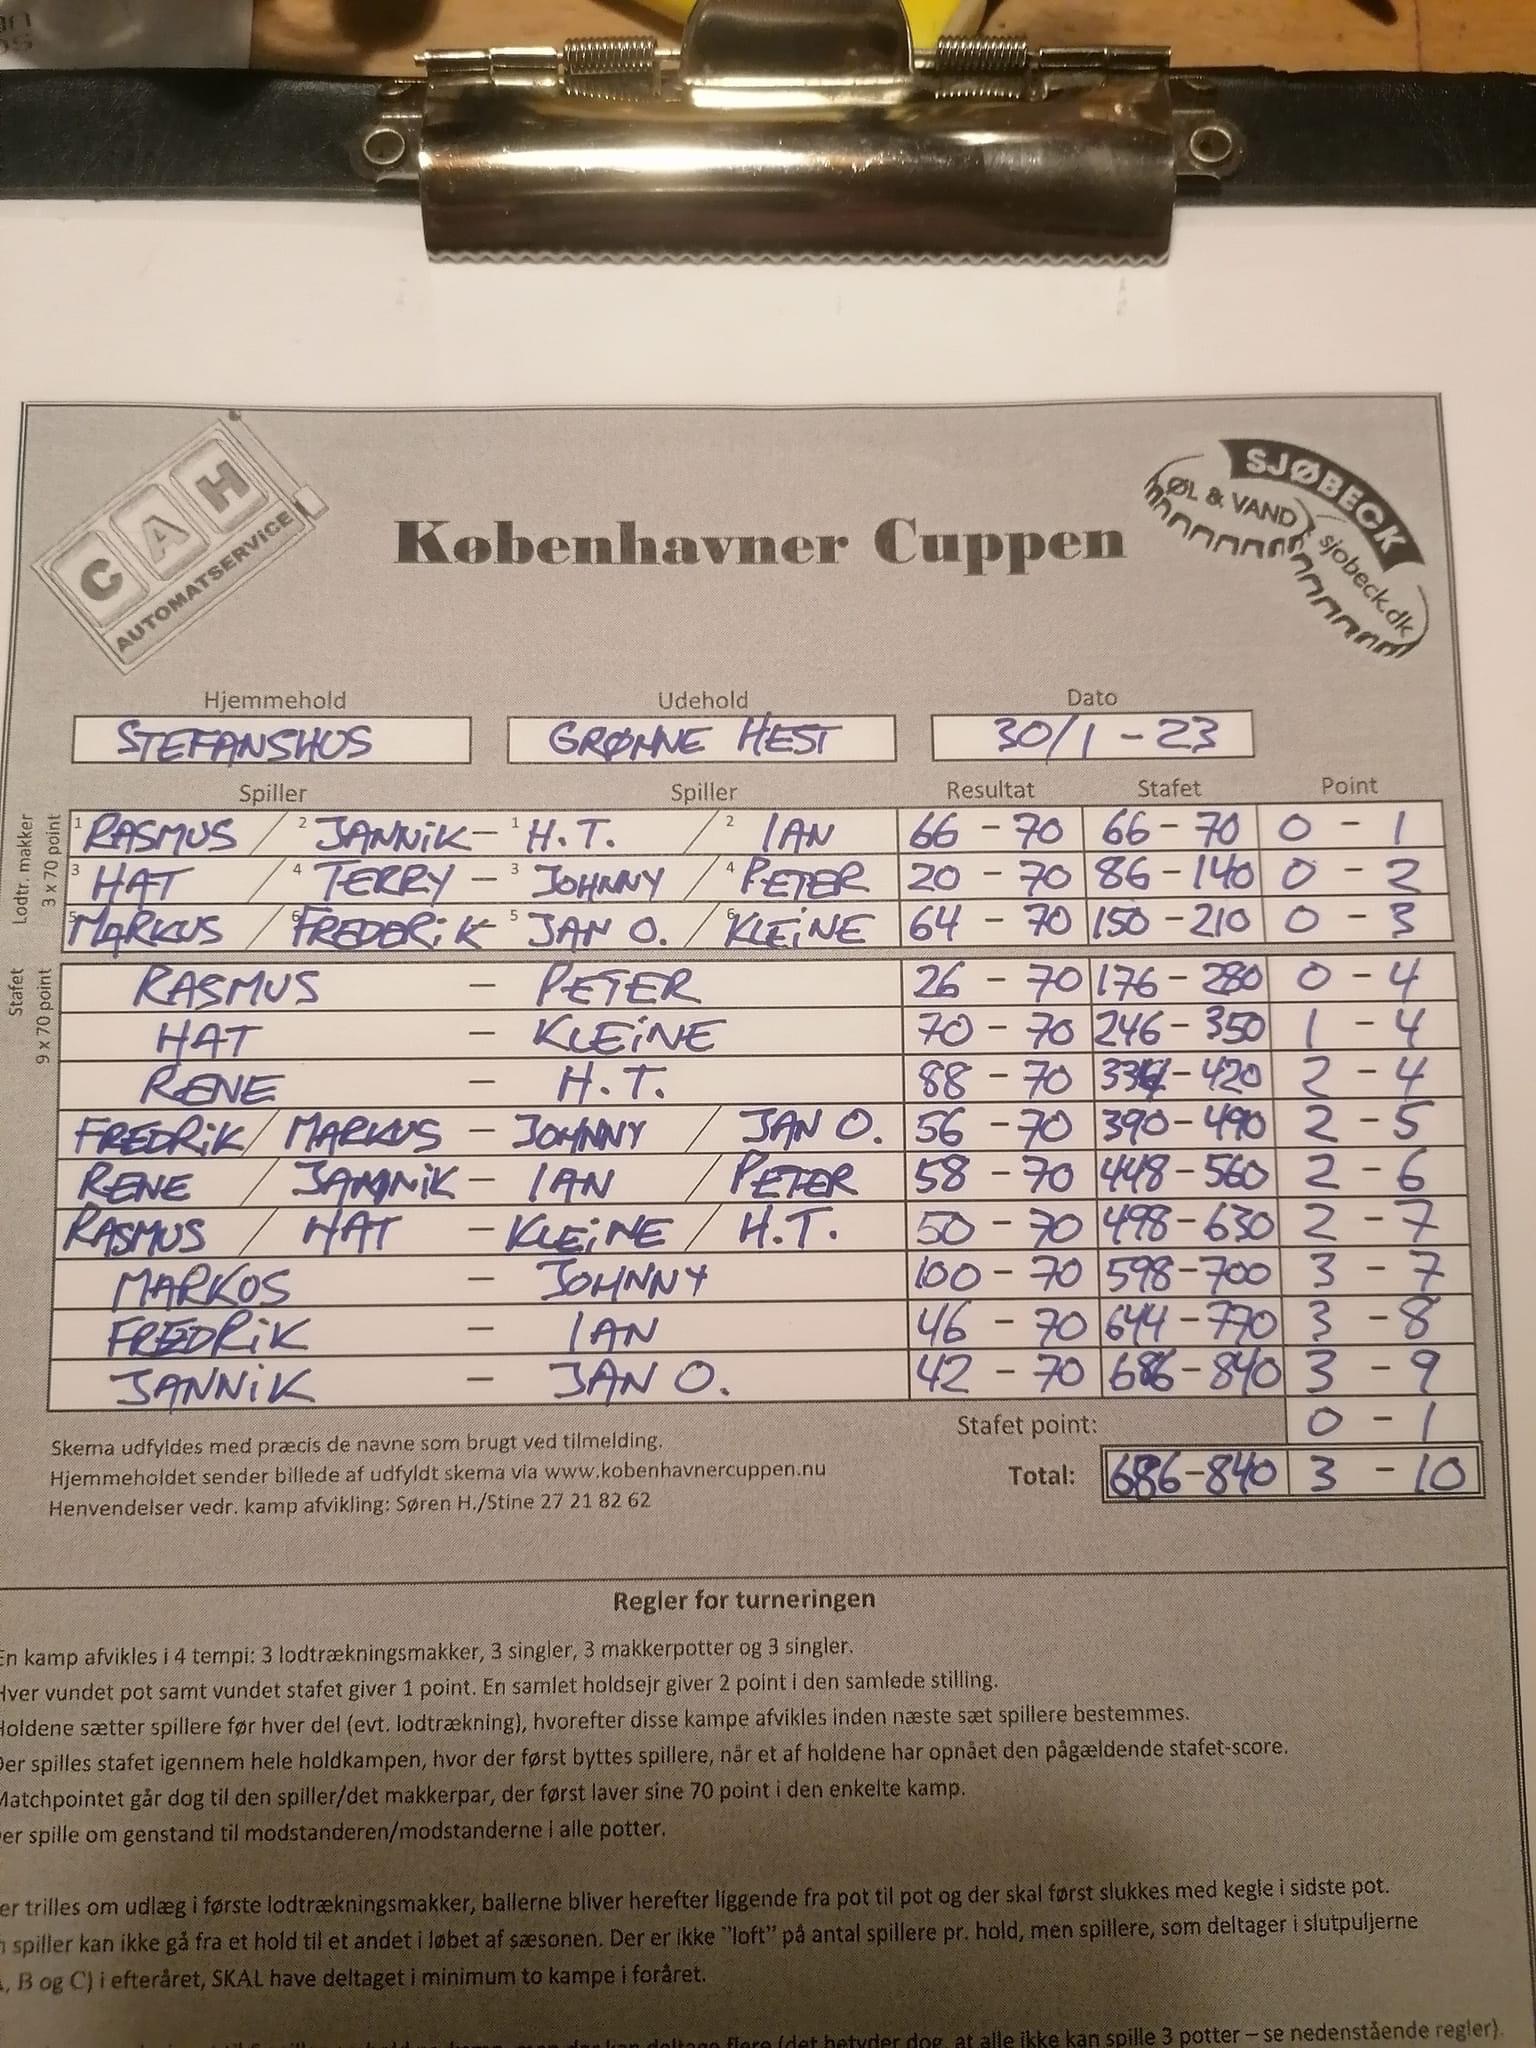 CAH
AUTOMATSERVICE
Københavner Cuppen
SJØBECK
ØL & VAND
sjobeck.dk
Hjemmehold Udehold Dato
STEFANSHUS GRØNNE HEST 30/1 - 23
Spiller Spiller Resultat Stafet Point
Lodtr. makker
3 x 70 point
1 RASMUS / 2 JANNiK - 1 H.T. / 2 IAN 66 - 70 66 - 70 0 - 1
3 HAT / 4 TERRY - 3 JOHNNY / 4 PETER 20 - 70 86 - 140 0 - 2
5 MARKUS / 6 FREDERiK - 5 JAN O. / 6 KLEiNE 64 - 70 150 - 210 0 - 3
Stafet
9 x 70 point
RASMUS - PETER 26 - 70 176 - 280 0 - 4
HAT - KLEiNE 70 - 70 246 - 350 1 - 4
RENE - H.T. 88 - 70 334 - 420 2 - 4
FREDRiK / MARKUS - JOHNNY / JAN O. 56 - 70 390 - 490 2 - 5
RENE / JANNiK - IAN / PETER 58 - 70 448 - 560 2 - 6
RASMUS / HAT - KLEiNE / H.T. 50 - 70 498 - 630 2 - 7
MARKOS - JOHNNY 100 - 70 598 - 700 3 - 7
FREDRiK - IAN 46 - 70 644 - 770 3 - 8
JANNiK - JAN O. 42 - 70 686 - 840 3 - 9
Stafet point: 0 - 1
Skema udfyldes med præcis de navne som brugt ved tilmelding.
Hjemmeholdet sender billede af udfyldt skema via www.kobenhavnercuppen.nu
Total: 686 - 840 3 - 10
Henvendelser vedr. kamp afvikling: Søren H./Stine 27 21 82 62
Regler for turneringen
En kamp afvikles i 4 tempi: 3 lodtrækningsmakker, 3 singler, 3 makkerpotter og 3 singler.
Hver vundet pot samt vundet stafet giver 1 point. En samlet holdsejr giver 2 point i den samlede stilling.
Holdene sætter spillere før hver del (evt. lodtrækning), hvorefter disse kampe afvikles inden næste sæt spillere bestemmes.
Der spilles stafet igennem hele holdkampen, hvor der først byttes spillere, når et af holdene har opnået den pågældende stafet-score.
Matchpointet går dog til den spiller/det makkerpar, der først laver sine 70 point i den enkelte kamp.
er spille om genstand til modstanderen/modstanderne i alle potter.
er trilles om udlæg i første lodtrækningsmakker, ballerne bliver herefter liggende fra pot til pot og der skal først slukkes med kegle i sidste pot.
n spiller kan ikke gå fra et hold til et andet i løbet af sæsonen. Der er ikke "loft" på antal spillere pr. hold, men spillere, som deltager i slutpuljerne
, B og C) i efteråret, SKAL have deltaget i minimum to kampe i foråret.
deltage flere (det betyder dog, at alle ikke kan spille 3 potter – se nedenstående regler).